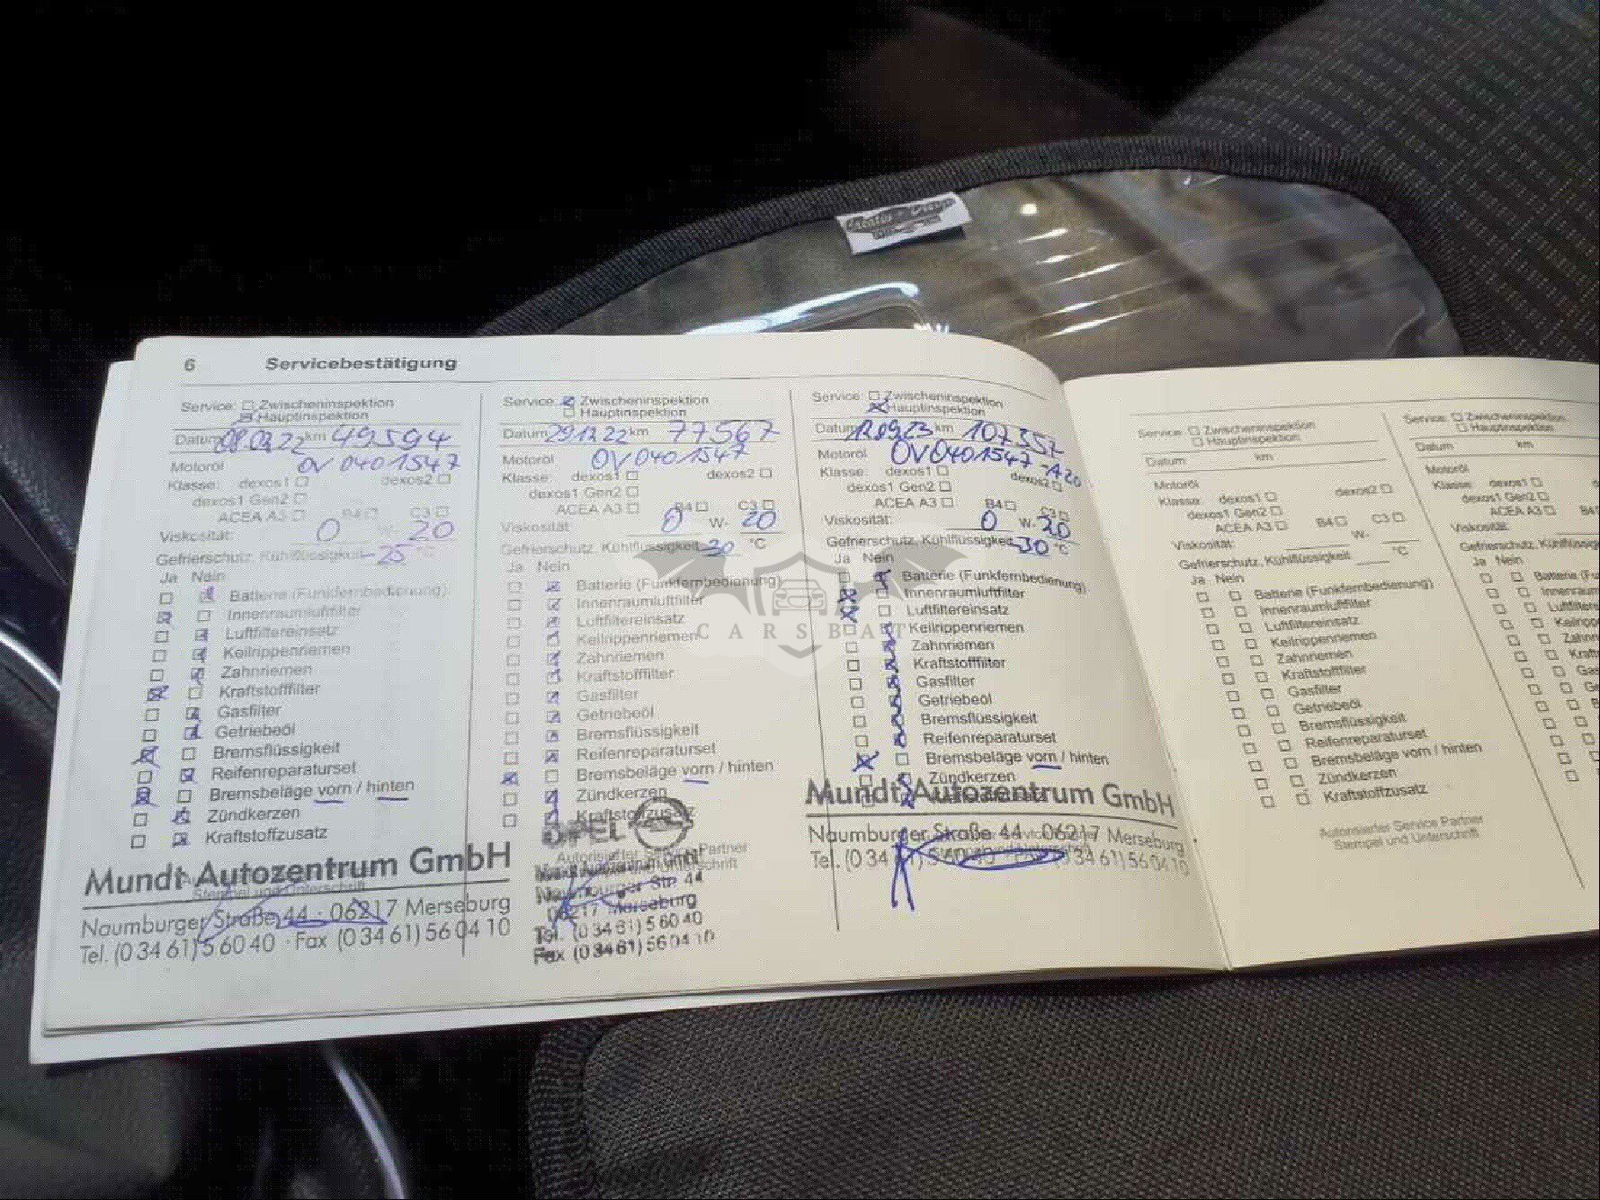 6 Servicebestätigung
Service: Zwischeninspektion
Hauptinspektion
Datum 08.02.22 km 49594
Motoröl OV 0401547
Klasse: dexos1 dexos2
dexos1 Gen2
ACEA A3 B4 C3
Viskosität: 0 W- 20
Gefrierschutz, Kühlflüssigkeit -25 °C
Ja Nein
Batterie (Funkfernbedienung)
Innenraumluftfilter
Luftfiltereinsatz
Keilrippenriemen
Zahnriemen
Kraftstofffilter
Gasfilter
Getriebeöl
Bremsflüssigkeit
Reifenreparaturset
Bremsbeläge vorn / hinten
Zündkerzen
Kraftstoffzusatz
Stempel und Unterschrift
Mundt Autozentrum GmbH
Naumburger Straße 44 · 06217 Merseburg
Tel. (0 34 61) 5 60 40 · Fax (0 34 61) 56 04 10
Service: Zwischeninspektion
Hauptinspektion
Datum 29.12.22 km 77567
Motoröl OV 0401547
Klasse: dexos1 dexos2
dexos1 Gen2
ACEA A3 B4 C3
Viskosität: 0 W- 20
Gefrierschutz, Kühlflüssigkeit -30 °C
Ja Nein
Batterie (Funkfernbedienung)
Innenraumluftfilter
Luftfiltereinsatz
Keilrippenriemen
Zahnriemen
Kraftstofffilter
Gasfilter
Getriebeöl
Bremsflüssigkeit
Reifenreparaturset
Bremsbeläge vorn / hinten
Zündkerzen
Kraftstoffzusatz
OPEL
Autorisierter Service Partner
Mundt Autozentrum GmbH
Naumburger Str. 44
06217 Merseburg
Tel. (0 34 61) 5 60 40
Fax (0 34 61) 56 04 10
Service: Zwischeninspektion
Hauptinspektion
Datum 12.09.23 km 107357
Motoröl OV0401547-A20
Klasse: dexos1 dexos2
dexos1 Gen2
ACEA A3 B4 C3
Viskosität: 0 W- 20
Gefrierschutz, Kühlflüssigkeit -30 °C
Ja Nein
Batterie (Funkfernbedienung)
Innenraumluftfilter
Luftfiltereinsatz
Keilrippenriemen
Zahnriemen
Kraftstofffilter
Gasfilter
Getriebeöl
Bremsflüssigkeit
Reifenreparaturset
Bremsbeläge vorn / hinten
Zündkerzen
Mundt Autozentrum GmbH
Naumburger Straße 44 · 06217 Merseburg
Tel. (0 34 61) 5 60 40 · Fax (0 34 61) 56 04 10
CARSBAT
Service: Zwischeninspektion
Hauptinspektion
Datum km
Motoröl
Klasse: dexos1 dexos2
dexos1 Gen2
ACEA A3 B4 C3
Viskosität: W-
Gefrierschutz, Kühlflüssigkeit °C
Ja Nein
Batterie (Funkfernbedienung)
Innenraumluftfilter
Luftfiltereinsatz
Keilrippenriemen
Zahnriemen
Kraftstofffilter
Gasfilter
Getriebeöl
Bremsflüssigkeit
Reifenreparaturset
Bremsbeläge vorn / hinten
Zündkerzen
Kraftstoffzusatz
Autorisierter Service Partner
Stempel und Unterschrift
Service: Zwischeninspektion
Hauptinspektion
Datum km
Motoröl
Klasse: dexos1
dexos1 Gen2
ACEA A3
Viskosität:
Ja Nein